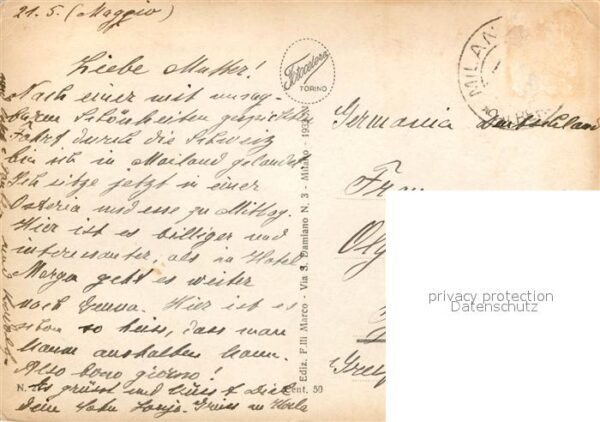 21. 5. (Maggio)
Liebe Mutter!
Nach einer mit unsag-
baren Schönheiten gespickten
Fahrt durch die Schweiz
bin ich in Mailand gelandet
Ich sitze jetzt in einer
Osteria und esse zu Mittag.
Hier ist es billiger und
interessanter, als im Hotel
Morgen geht es weiter
nach Genua. Hier ist es
schon so heiss, dass man
kaum aushalten kann.
Also bono giorno!
Es grüsst und küsst Dich
dein Sohn
N.
Cent. 50
Ediz. F.lli Marco - Via S. Damiano N. 3 - Milano - 193
Fotocelere
TORINO
MILAN
Germania Deutschland
Frau
Olg
privacy protection
Datenschutz